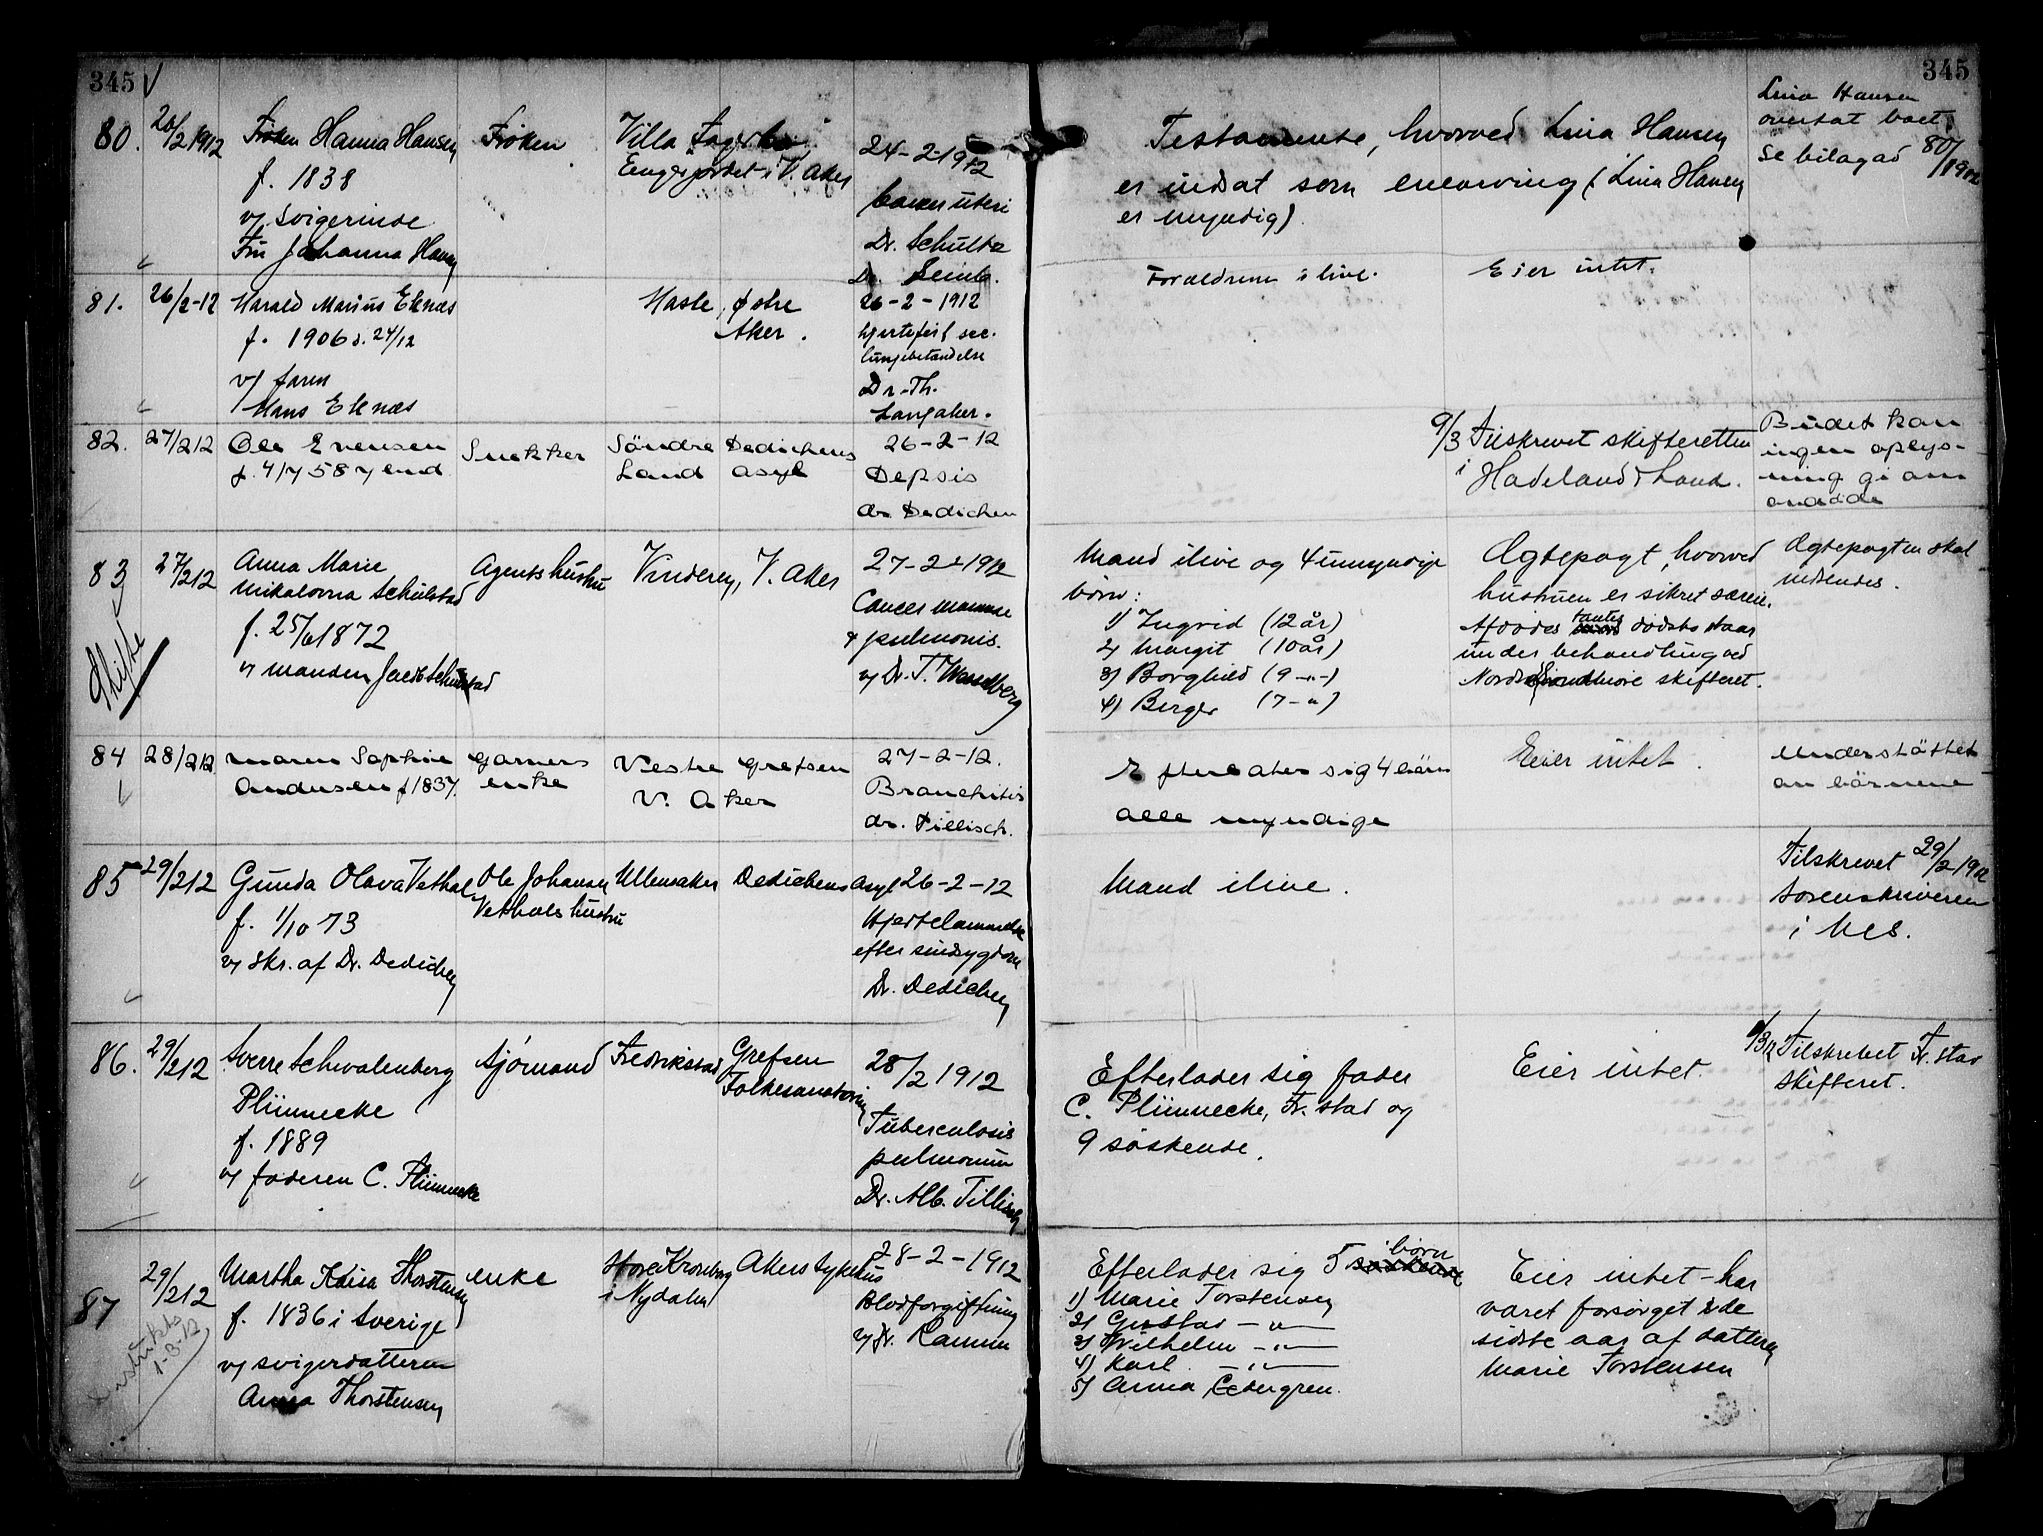 345
345
80.
26/2 1912
Frøken Hanna Hansen
f. 1838
v/ Svigerinde
Fru Johanna Hansen
Frøken
Villa
Engerjordet i V. Aker
24-2-1912
Cancer uteri
Dr. Schultz
Dr.
Testamente, hvorved Lina Hansen
er indsat som enearving (Lina Hansen
er myndig).
Lina Hansen
overtat boet
se bilag ad 80/1912
81.
26/2-12
Harald Marius Eknæs
f. 1906 d. 24/12
v/ faren
Hans Eknæs
Hasle, Østre
Aker.
26-2-1912
hjertefeil sec.
lungebetændelse
Dr. Th.
Langaker.
Forældrene i live.
Eier intet.
82.
27/2 12
Ole Evensen
f. 4/7 58 Lend
Snekker
Søndre
Land
Dedichens
asyl
26-2-12
Sepsis
dr. Dedichen
9/3 Tilskrevet skifteretten
i Hadeland & Land.
Budet kan
ingen oplys-
ning gi om
avdøde
83
Skifte
27/2 12
Anna Marie
Nikolovna Schulstad
f. 25/6 1872
v/ manden Jacob Schulstad
Agents hustru
Vinderen, V. Aker
27-2-1912
Cancer mammae
& pulmonis.
v/ Dr. T. Wandberg
Mand ilive og 4 umyndige
børn:
1) Ingrid (12 år)
2) Margit (10 år)
3) Borghild (9 -"-)
4) Birger (7 -")
Ægtepagt, hvorved
hustruen er sikret særeie.
Afdødes tantes dødsbo staar
under behandling ved
Nordre Søndmøre skifteret.
Ægtepagten skal
indsendes.
84
28/2 12
Maren Sophie
Andersen f 1837.
Garvers
enke
Vestre Grefsen
V. Aker
27-2-12.
Bronchitis
dr. Tillisch.
Efterlater sig 4 børn
alle myndige
Eier intet.
Understøttet
av børnene
85
29/2 12
Gunda Olava Vethal
f. 1/10 73
v/ skr. af Dr. Dedichen
Ole Johansen
Vethals hustru
Ullensaker
Dedichens Asyl
26-2-12
Hjertelammelse
efter sindsygdom
Dr. Dedichen
Mand ilive.
Tilskrevet 29/2 1912
Sorenskriveren
i Nes.
86.
29/2 12
Sverre Schwalenberg
Plünnecke
f. 1889
v/ faderen C. Plünnecke
Sjømand
Fredrikstad
Grefsen
Folkesanatorium
28/2 1912
Tuberculosis
pulmonum
Dr. Alb. Tillisch
Efterlader sig fader
C. Plünnecke, Fr. stad og
9 søskende.
Eier intet.
Tilskrevet Fr. stad
skifteret.
87
29/2 12
1-3-12
Martha Kaisa Thorstensen
f. 1836 i Sverige
v/ svigerdatteren
Anna Thorstensen
enke
Store Kronborg
i Nydalen
Akers sykehus
28-2-1912
Blodforgiftning
v/ Dr. Ramm
Efterlader sig 5 søskende børn
1) Marie Torstensen
2) Gustav -"-
3) Wilhelm -"-
4) Karl -"-
5) Anna Cedergren.
Eier intet - har
været forsørget i de
sidste aar af datteren
Marie Torstensen